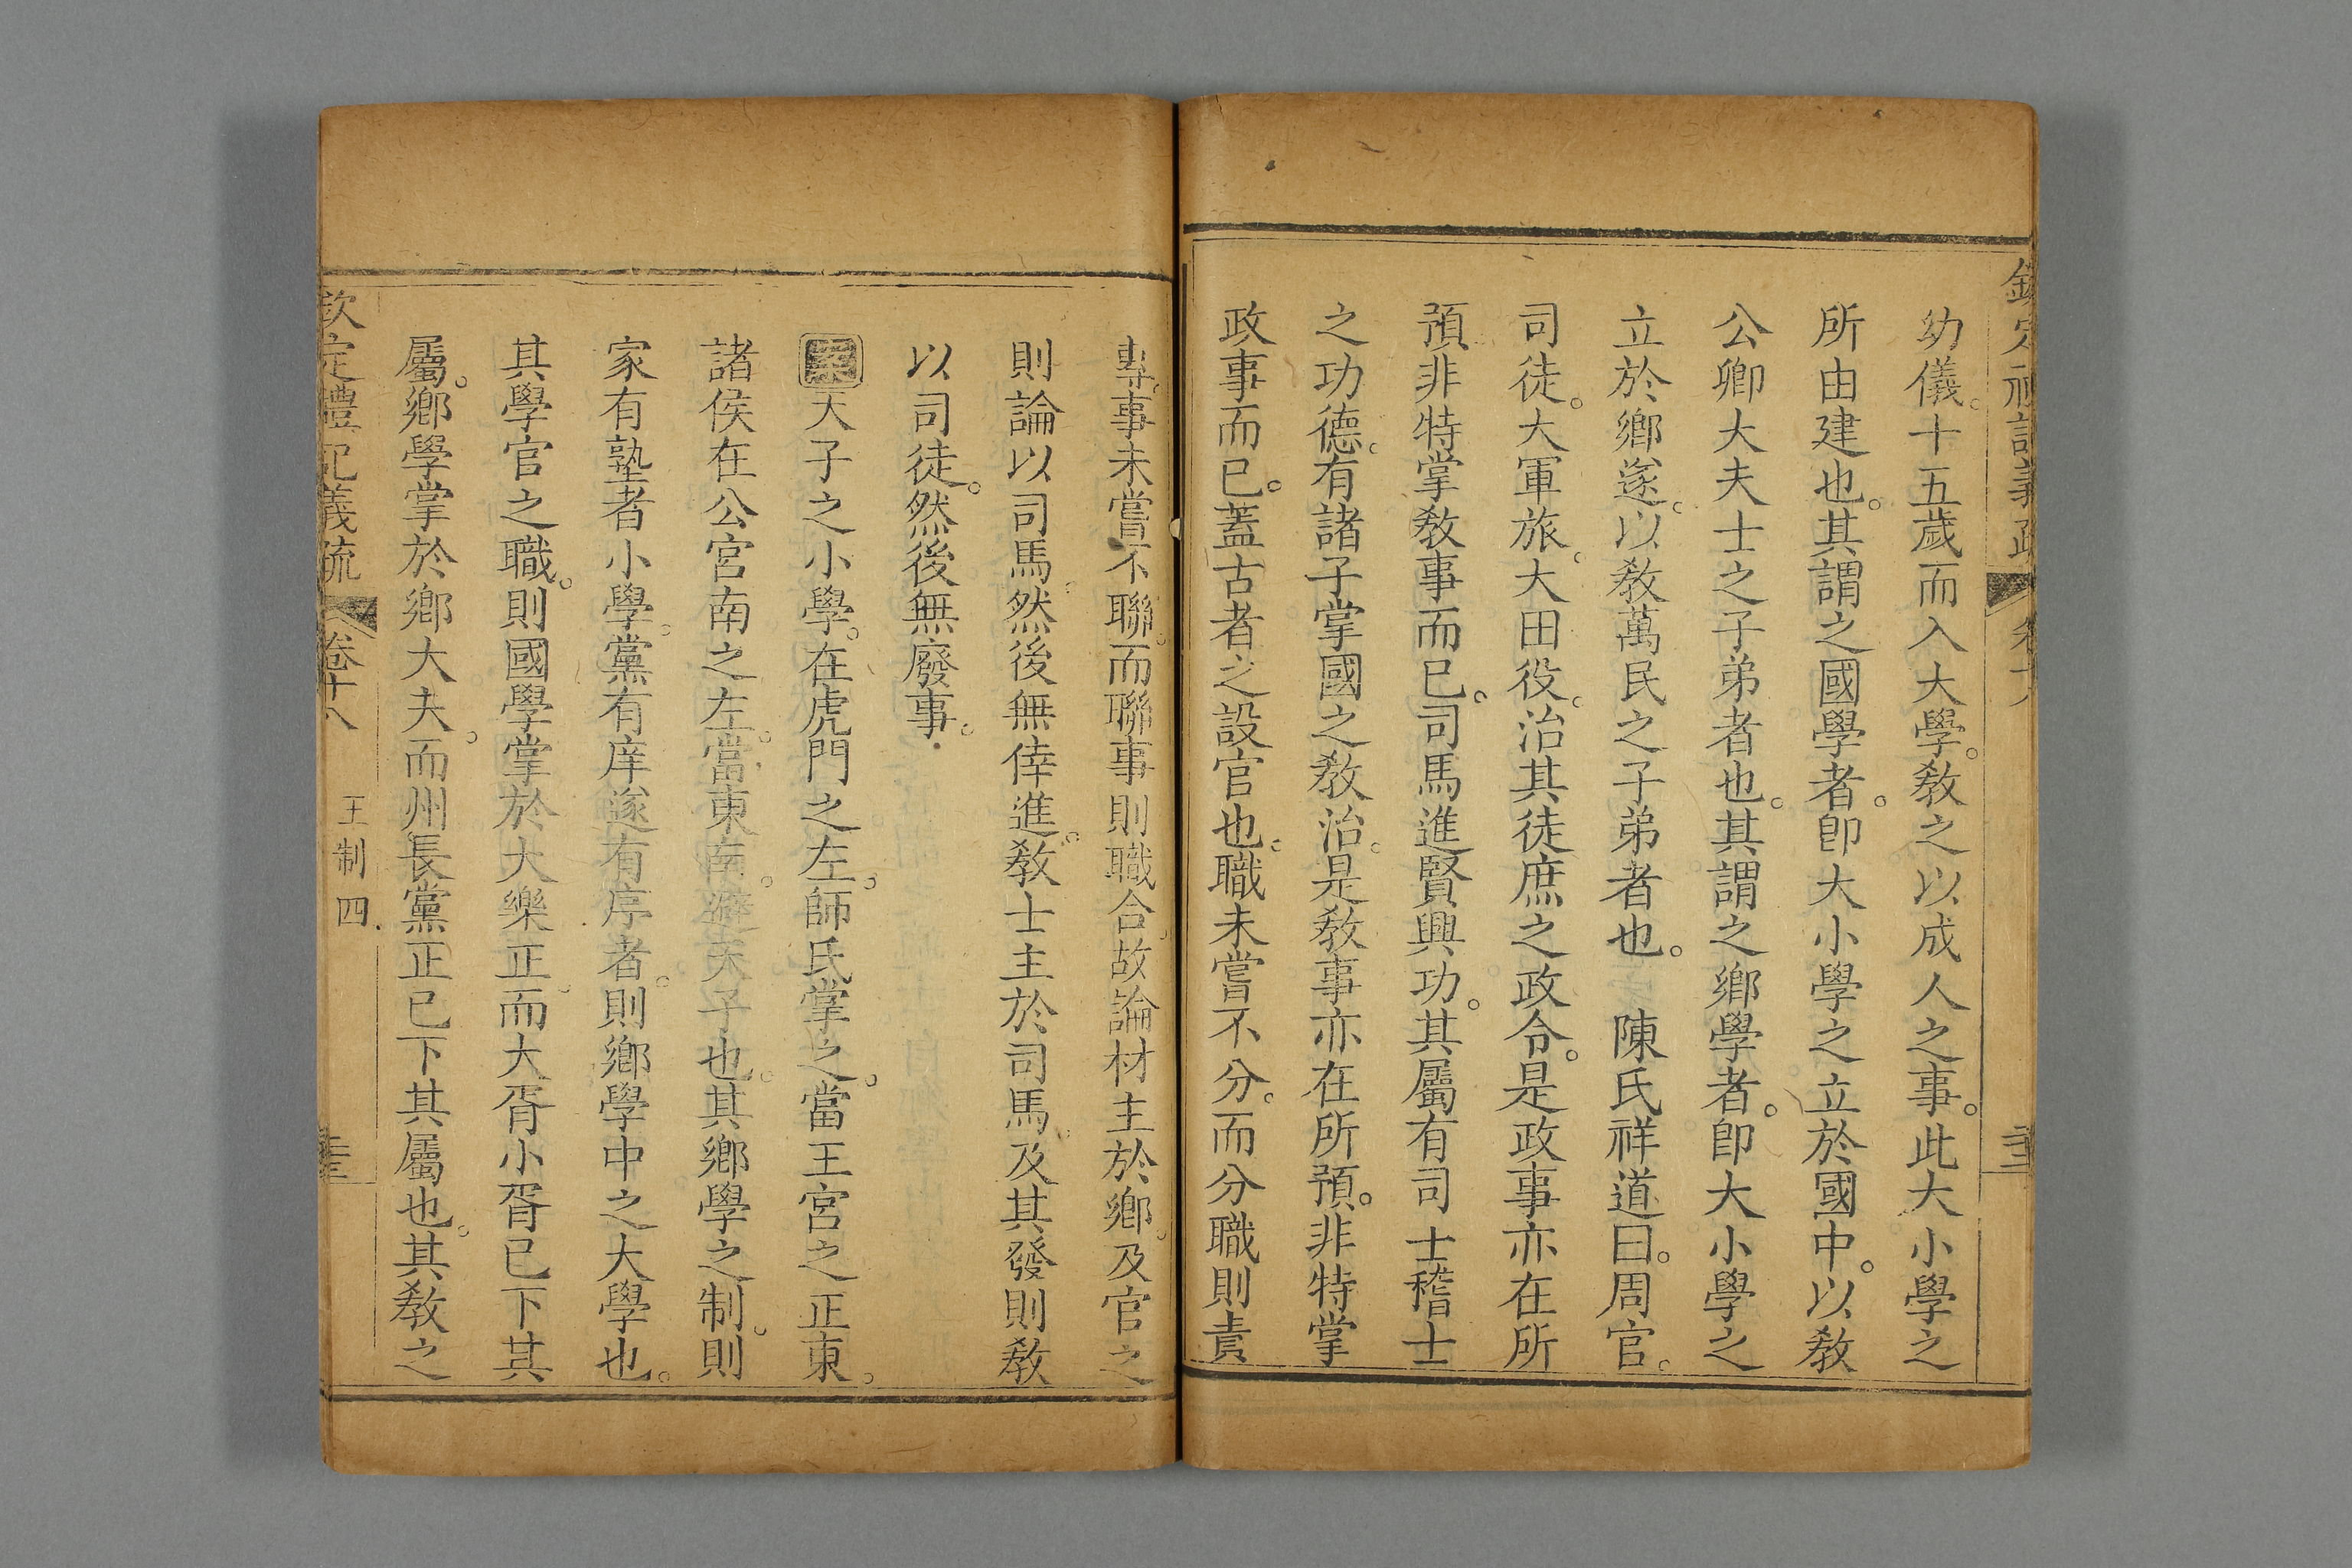 幼儀。十五歲而入大學。敎之以成人之事。此大小學之
所由建也。其謂之國學者。卽大小學之立於國中。以敎
公卿大夫士之子弟者也。其謂之鄉學者。卽大小學之
立於鄉遂。以敎萬民之子弟者也。 陳氏祥道曰。周官。
司徒。大軍旅。大田役。治其徒庶之政令。是政事亦在所
預。非特掌敎事而已。司馬進賢興功。其屬有司士稽士
之功德。有諸子掌國之敎治。是敎事亦在所預。非特掌
政事而已。蓋古者之設官也。職未嘗不分。而分職則責
專。事未嘗不聯。而聯事則職合。故論材主於鄉。及官之
則論以司馬。然後無倖進。敎士主於司馬。及其發則敎
以司徒。然後無廢事。
案天子之小學。在虎門之左。師氏掌之。當王宮之正東。
諸侯在公宮南之左。當東南。避天子也。其鄉學之制。則
家有塾者小學。黨有庠遂有序者。則鄉學中之大學也。
其學官之職。則國學掌於大樂正。而大胥小胥已下其
屬。鄉學掌於鄉大夫。而州長黨正已下其屬也。其敎之
欽定禮記義疏 卷十八 王制四